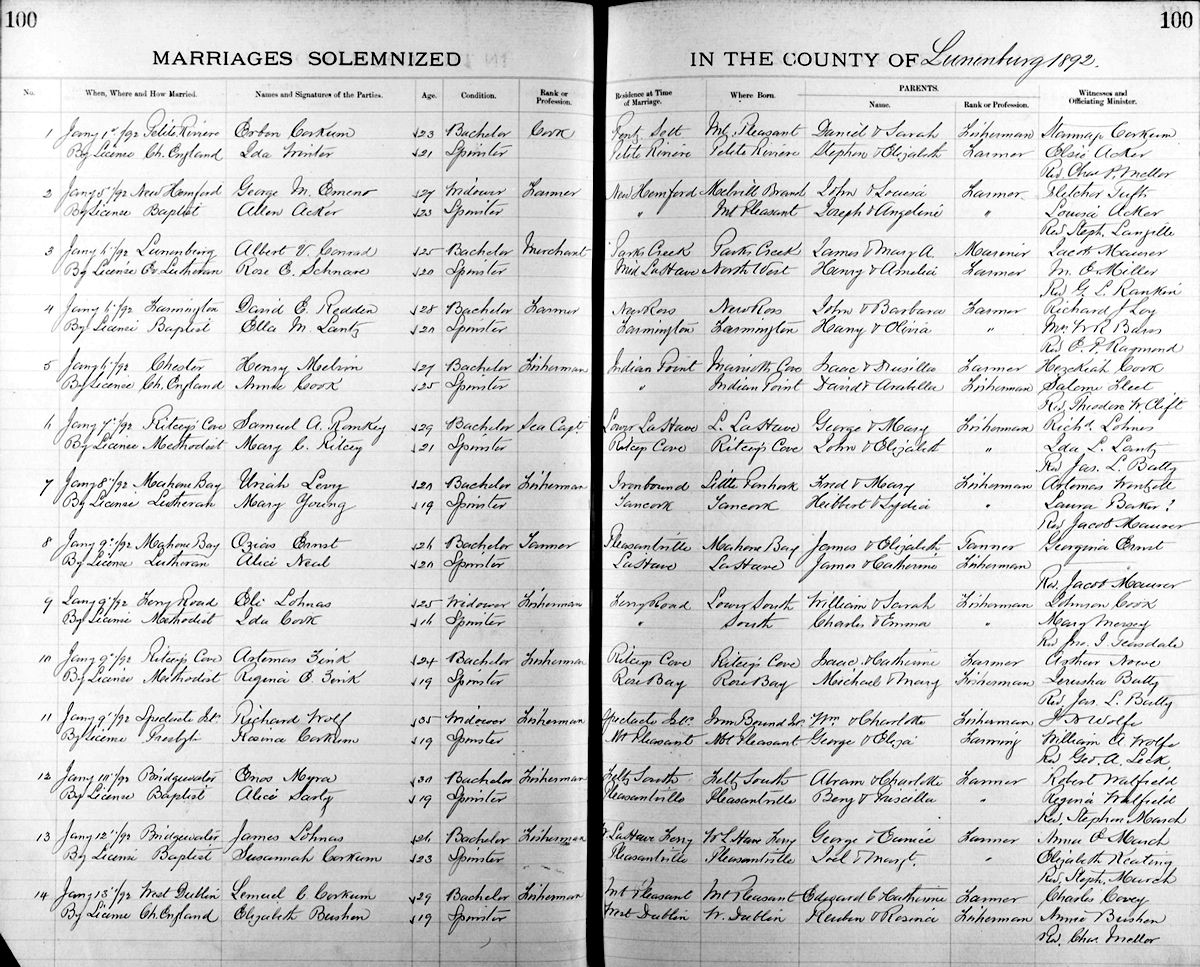 100
100
MARRIAGES SOLEMNIZED IN THE COUNTY OF Lunenburg 1892.
No. When, Where and How Married. Names and Signatures of the Parties. Age. Condition. Rank or Profession. Residence at Time of Marriage. Where Born. PARENTS. Name. Rank or Profession. Witnesses and Officiating Minister.
1 Jany 1st/92 Petite Riviere Orbon Corkum 23 Bachelor Cook Mt. Pleasant Daniel & Sarah Fisherman Corkum
By License Ch. England Ida Winter 21 Spinster Petite Riviere Petite Riviere Stephen & Elizabeth Farmer Elsie Acker
Rev Chas P. Mellor
2 Jany 5"/92 New Hemford George M. Emeno 27 Widower Farmer New Hemford Melvill Brand John & Louisa Farmer Fletcher Tufts
By License Baptist Allen Acker 23 Spinster " Mt Pleasant Joseph & Angeline " Louisa Acker
Rev Steph. Langille
3 Jany 6"/92 Lunenburg Albert V. Conrad 25 Bachelor Merchant Parks Creek Parks Creek James & Mary A. Mariner Jacob Maurer
By License Lutheran Rose E. Schnare 20 Spinster Mid LaHave North West Henry & Amelia Farmer M. O Miller
Rev G. L. Rankin
4 Jany 6"/92 Farmington David E. Redden 28 Bachelor Farmer New Ross New Ross John & Barbara Farmer Richard J Loy
By License Baptist Ella M. Lantz 20 Spinster Farmington Farmington Harry & Olivia " Mrs W R
Rev E. P. Raymond
5 Jany 6"/92 Chester Henry Melvin 27 Bachelor Fisherman Indian Point Marriotts Cove Isaac & Drusilla Farmer Hezekiah Cook
By License Ch. England Annie Cook 25 Spinster " Indian Point David & Arabella Fisherman Salome Fleet
Rev. Theodore W. Clift
6 Jany 7"/92 Ritceys Cove Samuel A. Romkey 29 Bachelor Sea Capt. Lower LaHave L. LaHave George & Mary Fisherman Richd. Lohnes
By License Methodist Mary C. Ritcey 21 Spinster Ritceys Cove Ritceys Cove John & Elizabeth " Ida L. Lantz
Rev Jas. L. Batty
7 Jany 8"/92 Mahone Bay Uriah Levy 20 Bachelor Fisherman Ironbound Little Tancook Fred & Mary Fisherman Artemas
By License Lutheran Mary Young 19 Spinster Tancook Tancook Heibbert & Lydia " Laura Baker?
Rev Jacob Maurer
8 Jany 9"/92 Mahone Bay Ozias Ernst 26 Bachelor Tanner Pleasantville Mahone Bay James & Elizabeth Tanner Georgina Ernst
By License Lutheran Alice Neal 20 Spinster LaHave LaHave James & Catherine Fisherman
Rev. Jacob Maurer
9 Jany 9"/92 Ferry Road Eli Lohnas 25 Widower Fisherman Ferry Road Lower South William & Sarah Fisherman Johnson Cook
By License Methodist Ida Cook 16 Spinster " South Charles & Emma " Mary Mersey
Rev Jno. J. Teasdale
10 Jany 9"/92 Ritceys Cove Artemas Zink 24 Bachelor Fisherman Ritceys Cove Ritceys Cove Isaac & Catherine Farmer Arthur Nowe
By License Methodist Regina O. Zink 19 Spinster Rose Bay Rose Bay Michael & Mary Fisherman Jerusha Batty
Rev. Jas. L. Batty
11 Jany 9"/92 Spectacle Isl. Richard Wolf 35 Widower Fisherman Spectacle Isl. Iron Bound Is. Wm. & Charlotte Fisherman Wolfe
By License Presbytn Rosina Corkum 19 Spinster Mt Pleasant Mt Pleasant George & Eliza Farming William A. Wolfe
Rev Geo. A. Leck.
12 Jany 10"/92 Bridgewater Enos Myra 30 Bachelor Fisherman Feltz South Feltz South Abram & Charlotte Farmer Robert Watfield
By License Baptist Alice Sarty 19 Spinster Pleasantville Pleasantville Benj & Priscilla " Regina Watfield
Rev. Stephen March
13 Jany 12"/92 Bridgewater James Lohnas 26 Bachelor Fisherman W LaHave Ferry W LaHave Ferry George & Eunice Farmer Anna O March
By License Baptist Susannah Corkum 23 Spinster Pleasantville Pleasantville Joel & Margt. " Elizabeth Keating
Rev. Steph. March
14 Jany 13"/92 West Dublin Lemuel C Corkum 29 Bachelor Fisherman Mt Pleasant Mt Pleasant Edward C Katherine Farmer Charles Covey
By License Ch. England Elizabeth Bushen 19 Spinster West Dublin W. Dublin Reuben & Rosina Fisherman Annie Bushen
Rev. Chas. Mellor